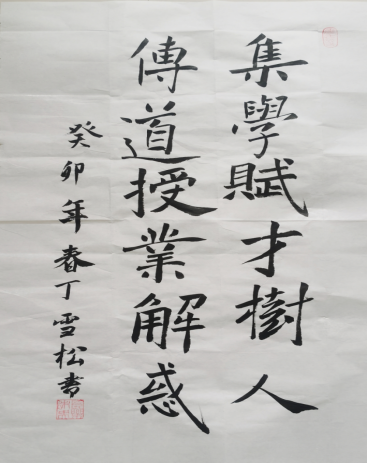 集學賦才樹人
傳道授業解惑
癸卯年春丁雪松書